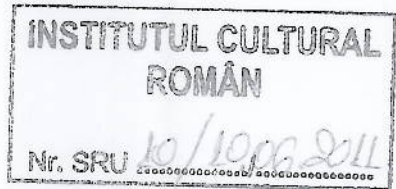 INSTITUTUL CULTURAL
ROMÂN
Nr. SRU 10/10.06.2011